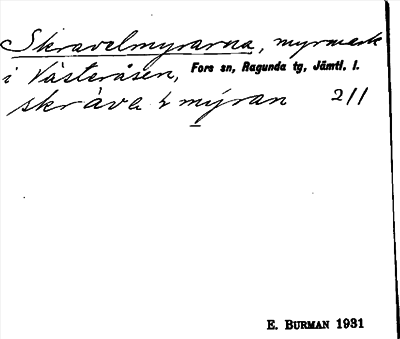 Skravelmyrarna, myrmark
i Västeråsen, Fors sn, Ragunda tg, Jämtl. l.
skràvel mýran 2/1
E. BURMAN 1931